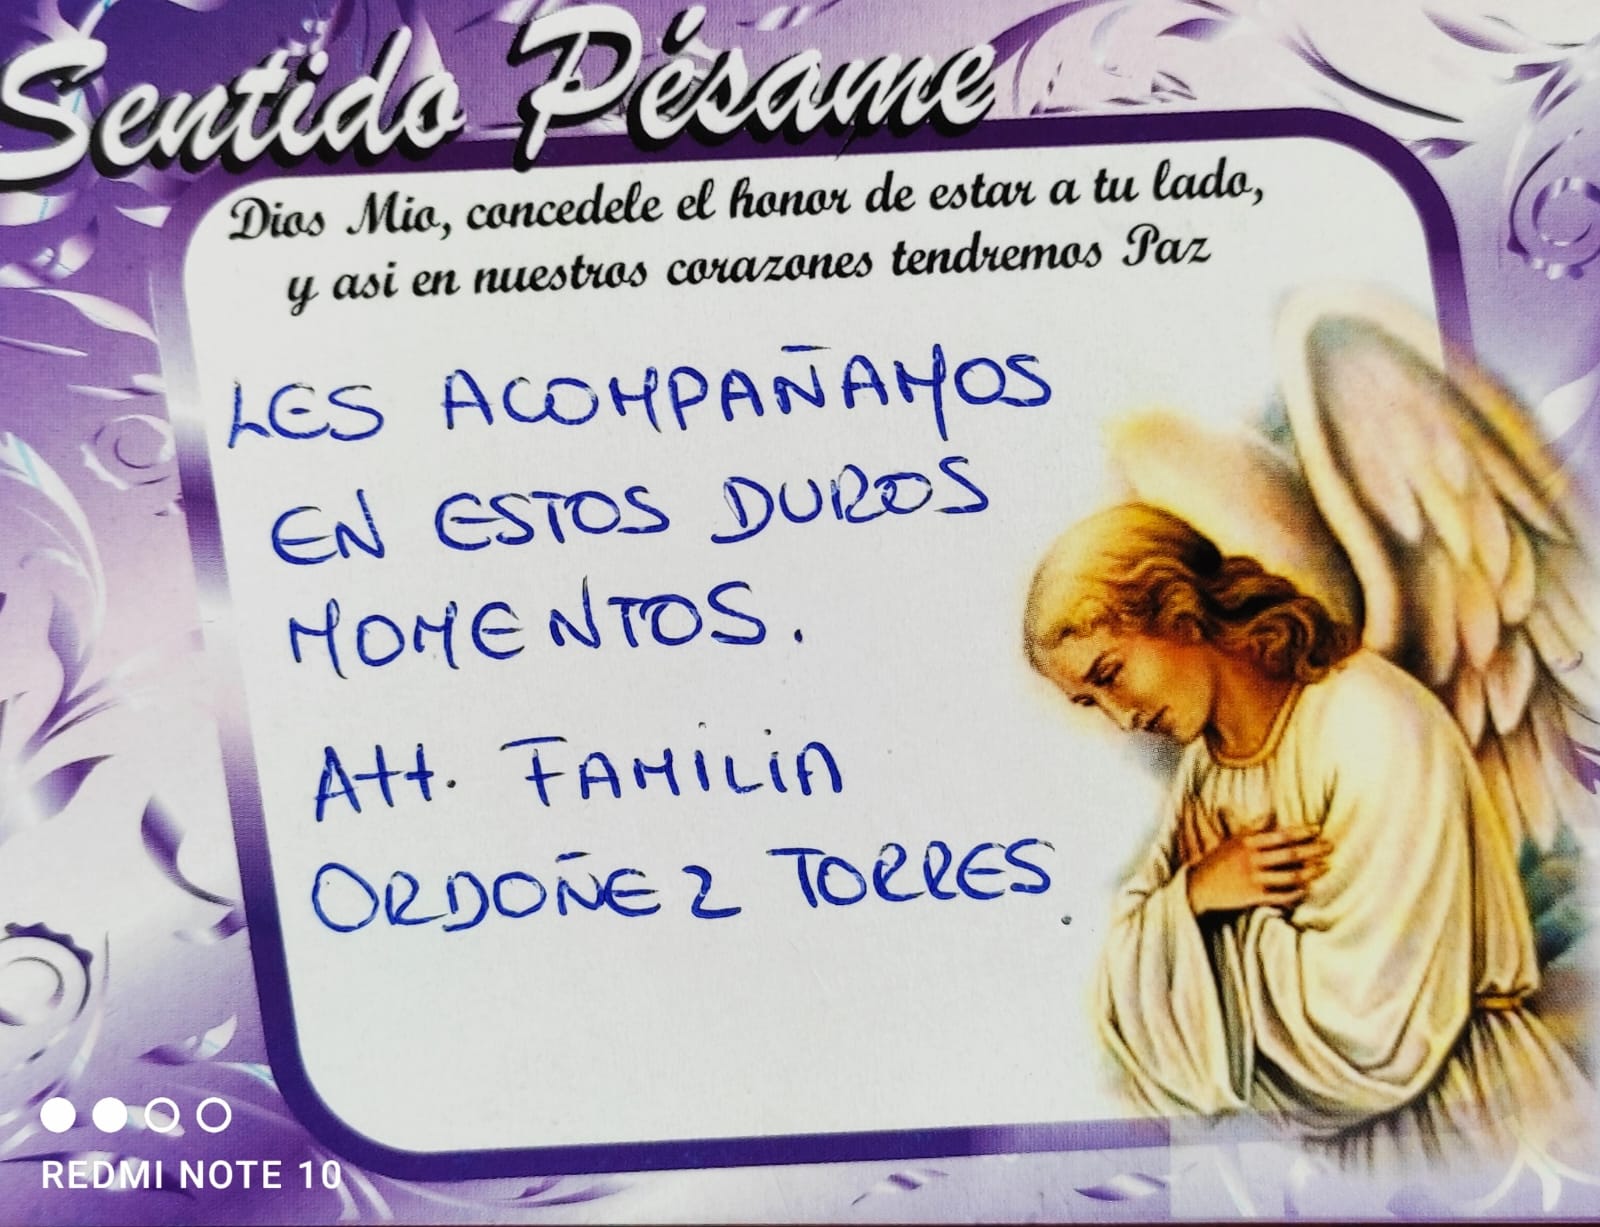 Sentido Pésame
Dios Mio, concedele el honor de estar a tu lado,
y asi en nuestros corazones tendremos Paz
LES ACOMPAÑAMOS
EN ESTOS DUROS
MOMENTOS.
Att. FAMILIA
ORDOÑEZ TORRES.
REDMI NOTE 10